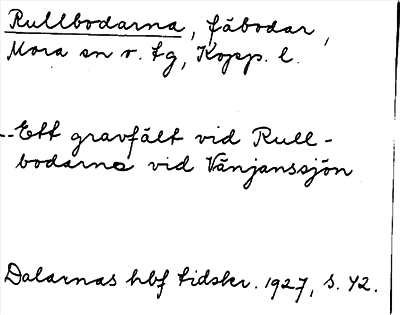 Rullbodarna, fäbodar,
Mora sn v. tg, Kopp. l.
--Ett gravfält vid Rull-
bodarna vid Vänjanssjön
Dalarnas hbf tidskr. 1927, s. 42.